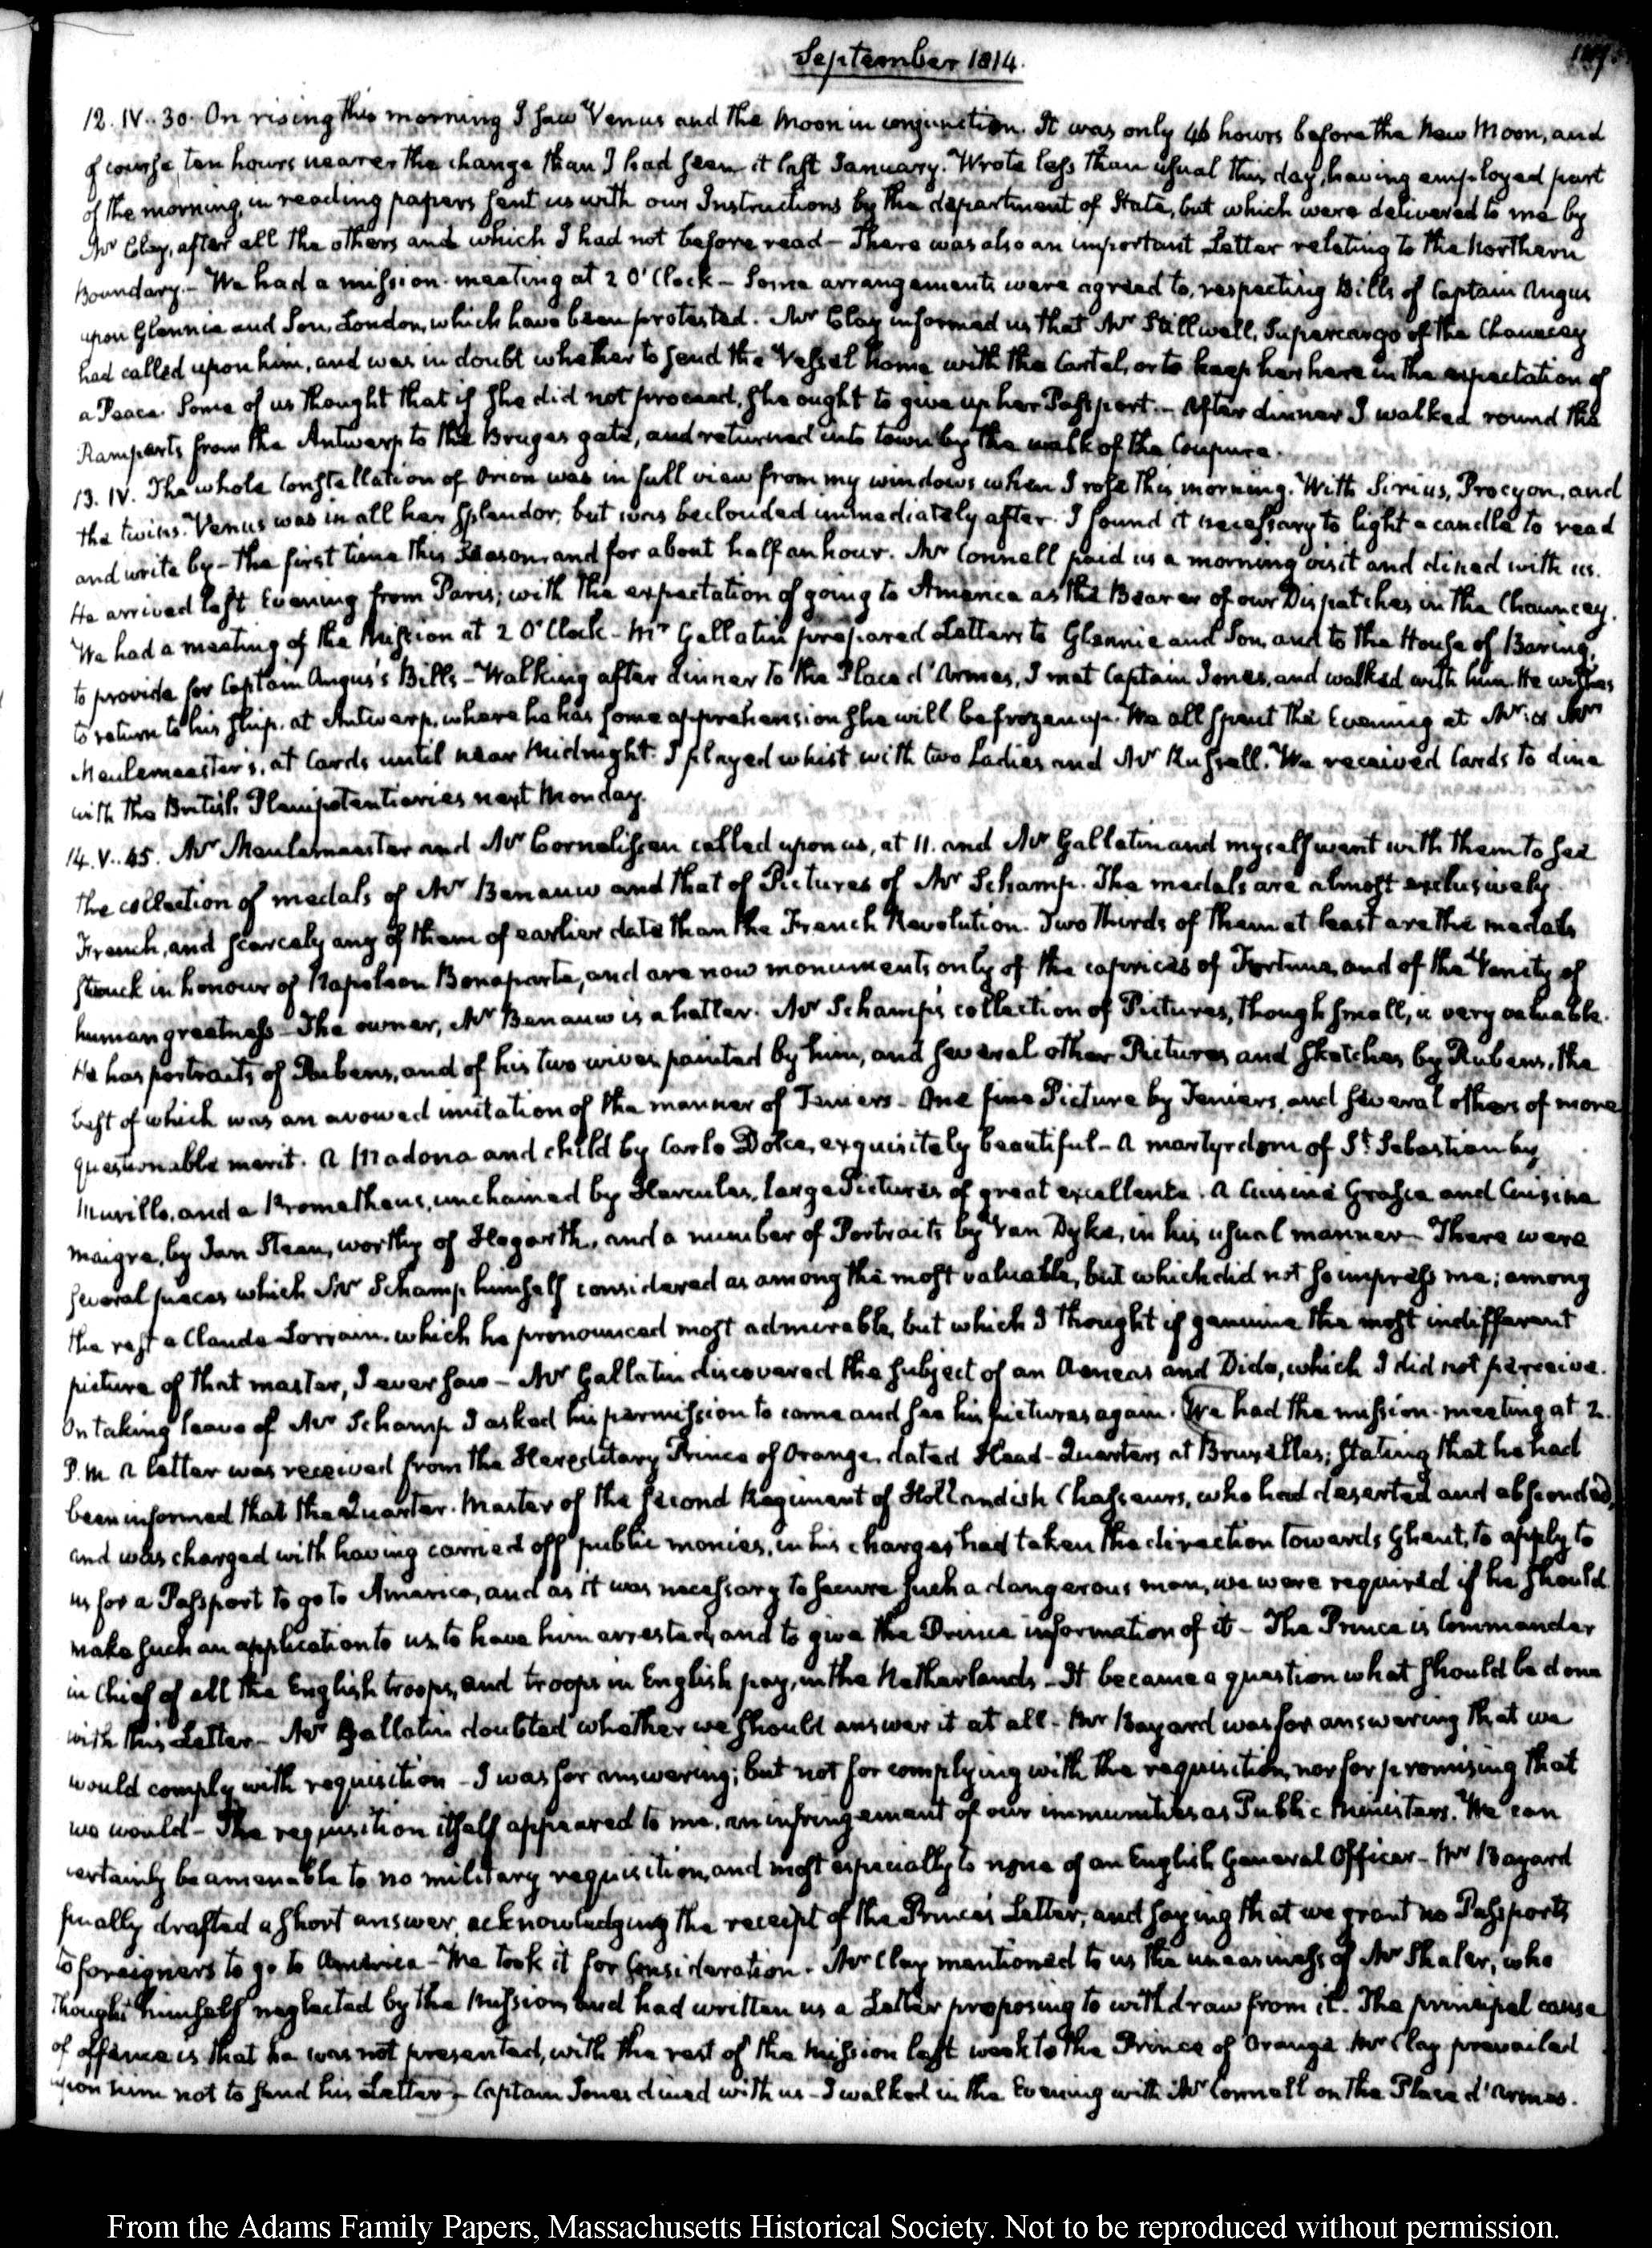 September 1814.
12. IV.. 30. On rising this morning I saw Venus and the Moon in conjunction. It was only 46 hours before the New Moon, and
of course, ten hours nearer the change than I had seen it last January. Wrote less than usual this day, having employed part
of the morning, in reading papers sent us with our Instructions by the department of State, but which were delivered to me by
Mr Clay, after all the others and which I had not before read — There was also an important Letter relating to the Northern
Boundary. — We had a mission-meeting at 2 O'Clock — Some arrangements were agreed to, respecting Bills of Captain Angus
upon Glennie and Son, London, which have been protested. Mr Clay informed us that Mr Stillwell, Supercargo of the Chauncey
had called upon him, and was in doubt whether to send the Vessel home with the Cartel, or to keep her here in the expectation of
a Peace. Some of us thought that if she did not proceed, she ought to give up her Passport. — After dinner I walked round the
Ramparts from the Antwerp to the Bruges gate, and returned into town by the walk of the Coupure.
13. IV. The whole Constellation of Orion was in full view from my windows when I rose this morning. With Sirius, Procyon, and
the twins. Venus was in all her splendor; but was beclouded immediately after. I found it necessary to light a candle to read
and write by — the first time this Season, and for about half an hour. Mr Connell paid us a morning visit and dined with us.
He arrived last Evening from Paris; with the expectation of going to America as the Bearer of our Dispatches in the Chauncey.
We had a meeting of the Mission at 2 O'Clock — Mr Gallatin prepared Letters to Glennie and Son, and to the House of Baring,
to provide for Captain Angus's Bills — Walking after dinner to the Place d'Armes, I met Captain Jones, and walked with him. He wishes
to return to his ship, at Antwerp, where he has some apprehension she will be frozen up. We all spent the Evening at Mr. & Mrs
Meulemeester's, at Cards until near Midnight. I played whist with two Ladies and Mr Russell. We received Cards to dine
with the British Plenipotentiaries next Monday.
14. V.. 45. Mr Meulemeester and Mr Cornelissen called upon us, at 11. and Mr Gallatin and myself went with them to see
the collection of medals of Mr Benauw and that of Pictures of Mr Schamp. The medals are almost exclusively
French, and scarcely any of them of earlier date than the French Revolution. Two thirds of them at least are the medals
struck in honour of Napoleon Bonaparte, and are now monuments only of the caprices of Fortune, and of the Vanity of
human greatness — The owner, Mr Benauw is a hatter. Mr Schamp's collection of Pictures, though small, is very valuable.
He has portraits of Rubens, and of his two wives painted by him, and several other Pictures and sketches by Rubens, the
best of which was an avowed imitation of the manner of Teniers — One fine Picture by Teniers, and several others of more
questionable merit. A Madona and child by Carlo Dolce, exquisitely beautiful — A martyrdom of St. Sebastian by
Murillo, and a Prometheus, unchained by Hercules, large Pictures of great excellence. A Cuisine Grasse and Cuisine
maigre, by Jan Steen, worthy of Hogarth, and a number of Portraits by Van Dyke, in his usual manner — There were
several pieces which Mr Schamp himself considered as among the most valuable, but which did not so impress me; among
the rest a Claude Lorrain, which he pronounced most admirable, but which I thought if genuine the most indifferent
picture of that master, I ever saw — Mr Gallatin discovered the subject of an Aeneas and Dido, which I did not perceive.
On taking leave of Mr Schamp I asked his permission to come and see his pictures again. We had the mission-meeting at 2.
P.M. A letter was received from the Hereditary Prince of Orange, dated Head-Quarters at Bruxelles; stating that he had
been informed that the Quarter-Master of the second Regiment of Hollandish Chasseurs, who had deserted and absconded,
and was charged with having carried off public monies, in his charge, had taken the direction towards Ghent, to apply to
us for a Passport to go to America, and as it was necessary to secure such a dangerous man, we were required if he should
make such an application to us, to have him arrested, and to give the Prince information of it — The Prince is Commander
in Chief of all the English troops, and troops in English pay, in the Netherlands — It became a question what should be done
with this Letter — Mr Gallatin doubted whether we should answer it at all — Mr Bayard was for answering that we
would comply with requisition — I was for answering; but not for complying with the requisition, nor for promising that
we would — The requisition itself appeared to me, an infringement of our immunities as Public Ministers. We can
certainly be amenable to no military requisition, and most especially to none of an English General Officer — Mr Bayard
finally drafted a short answer, acknowledging the receipt of the Prince's Letter, and saying that we grant no Passports
to foreigners to go to America — We took it for consideration. Mr Clay mentioned to us the uneasiness of Mr Shaler, who
thought himself neglected by the Mission, and had written us a Letter proposing to withdraw from it. The principal cause
of offence is that he was not presented, with the rest of the Mission last week to the Prince of Orange. Mr Clay prevailed
upon him not to send his Letter — Captain Jones dined with us — I walked in the Evening with Mr Connell on the Place d'Armes.
From the Adams Family Papers, Massachusetts Historical Society. Not to be reproduced without permission.